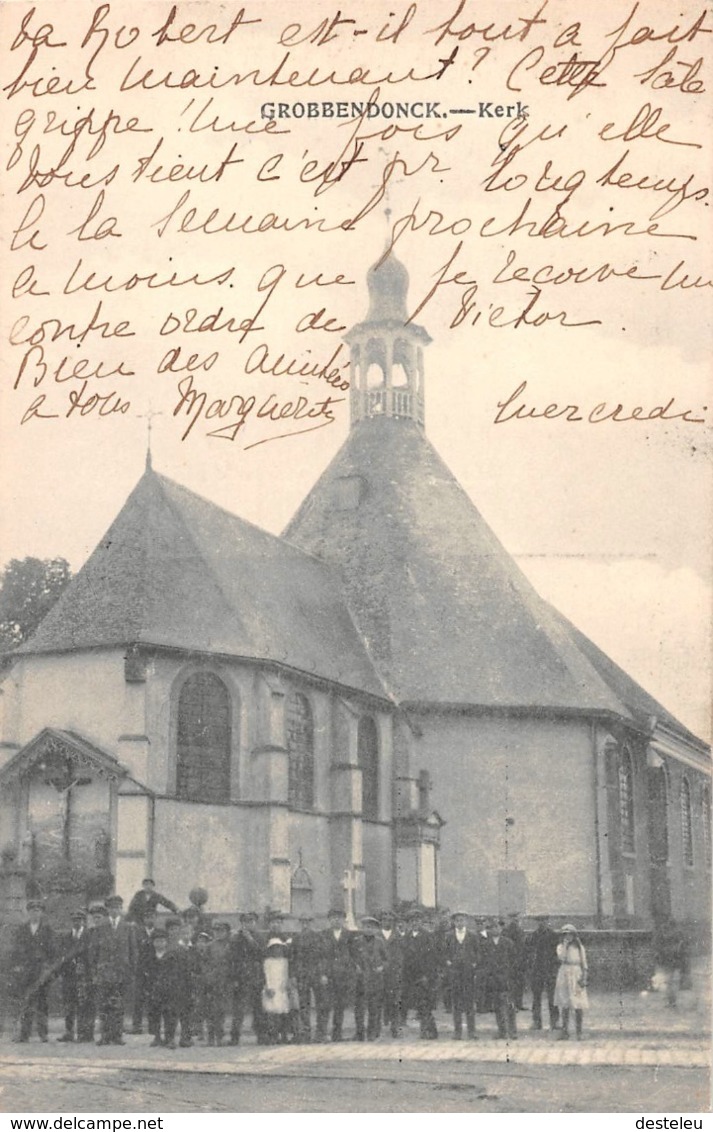 Va Robert est-il tout à fait
bien maintenant? Cette sâle
GROBBENDONCK.—Kerk
grippe! Une fois qu'elle
vous tient c'est pr. longtemps.
la semaine prochaine
a moins que je reçoive un
contre ordre de Victor.
Bien des Amitiés
a tous Marguerite
Mercredi
desteleu